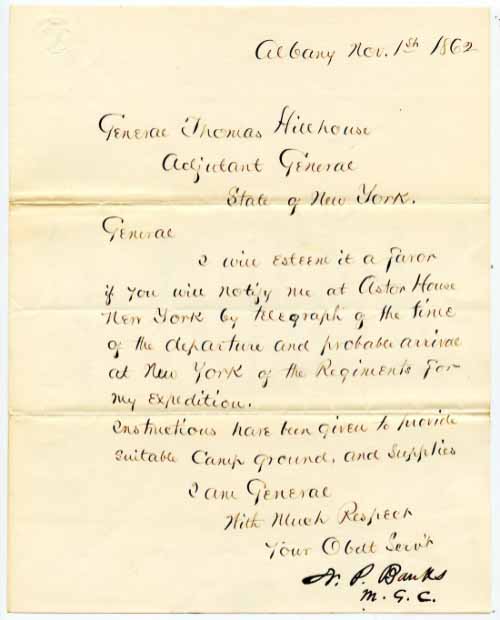 Albany Nov. 1st 1862
General Thomas Hillhouse
Adjutant General
State of New York.
General
I will esteem it a favor
if you will notify me at Astor House
New York by telegraph of the time
of the departure and probable arrival
at New York of the Regiments for
my expedition.
Instructions have been given to provide
suitable Camp ground, and supplies
I am General
With Much Respect
Your Obdt Servt
N. P. Banks
M. G. C.